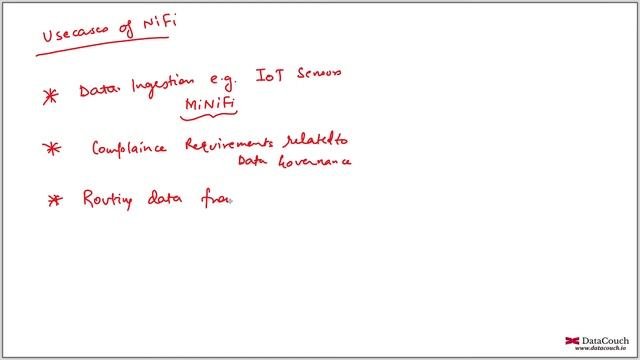 Usecases of NiFi
* Data Ingestion e.g. IoT Sensors
MiNiFi
* Complaince Requirements related to
Data Governance
* Routing data from
DataCouch
www.datacouch.io